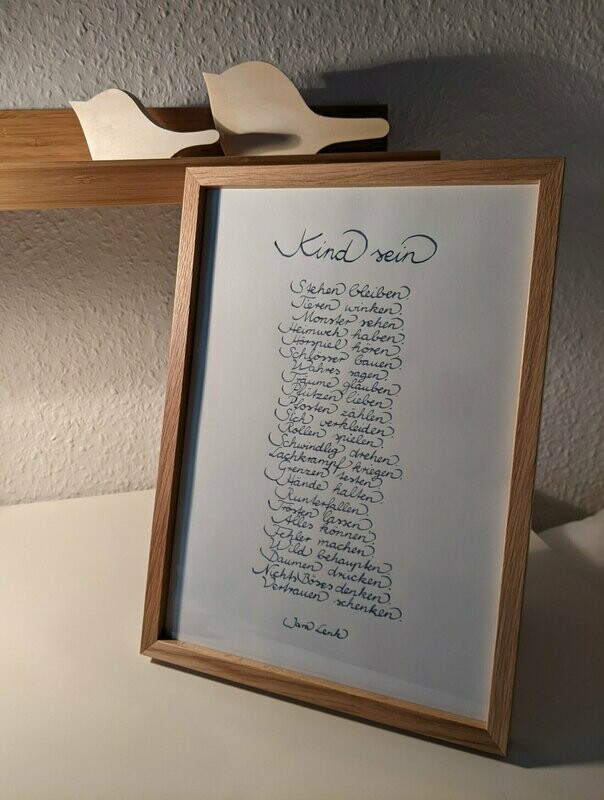 Kind sein
Stehen bleiben.
Tieren winken.
Monster sehen.
Heimweh haben.
Hörspiel hören.
Schlösser bauen.
Wahres sagen.
Träume glauben.
Pfützen lieben.
Pfosten zählen.
Sich verkleiden.
Rollen spielen.
Schwindlig drehen.
Lachkrampf kriegen.
Grenzen testen.
Hände halten.
Runterfallen.
Trösten lassen.
Alles können.
Fehler machen.
Wild behaupten.
Daumen drücken.
Nichts Böses denken.
Vertrauen schenken.